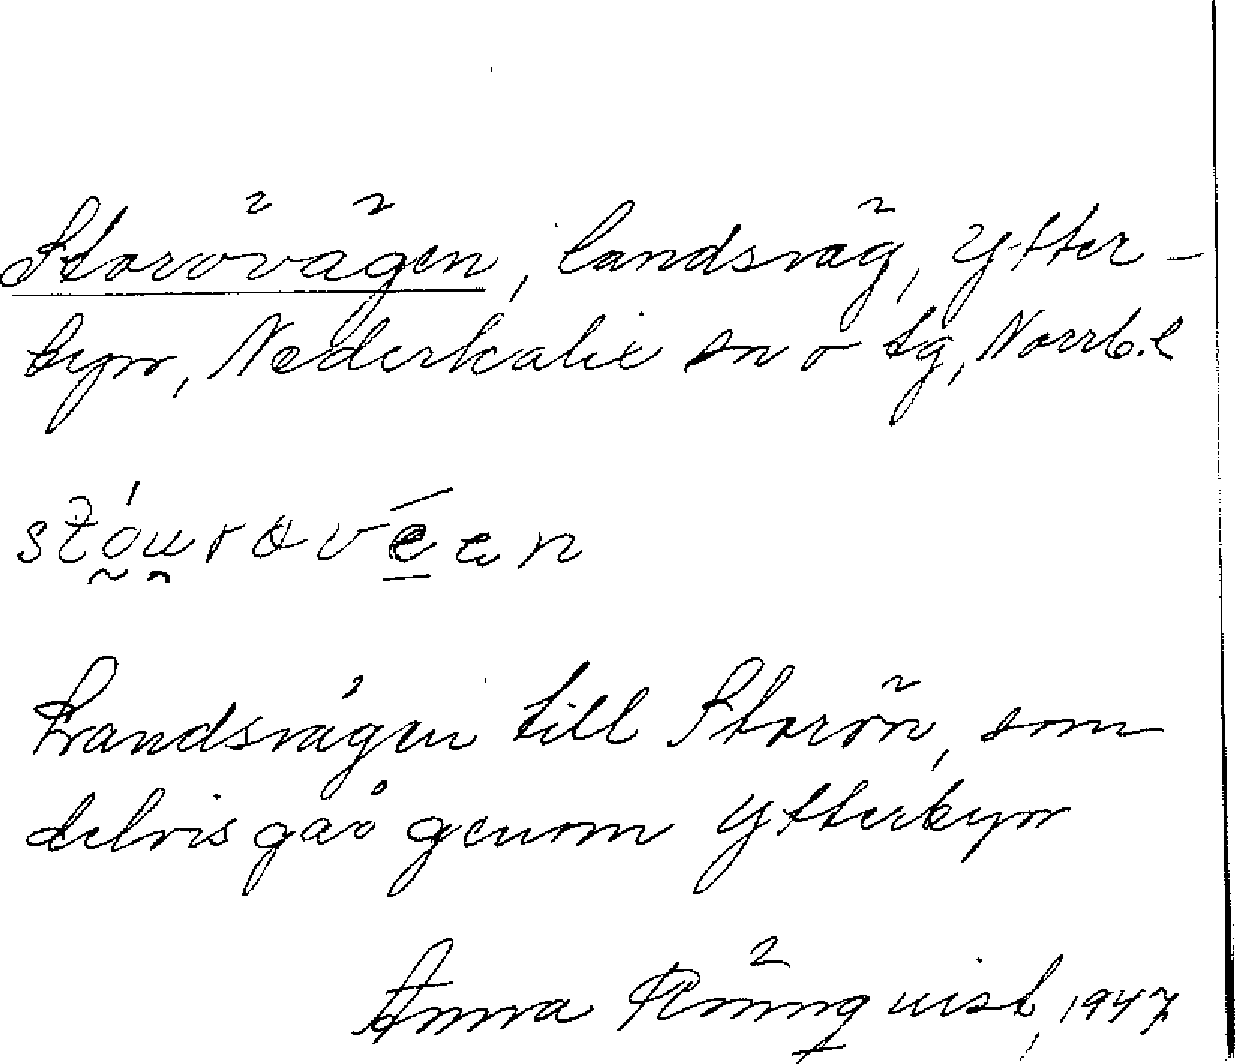 Storövägen, landsväg, Ytter-
byn, Nederkalix sn o tg, Norrb.l
Landsvägen till Storön, som
delvis går genom Ytterbyn
Anna Rönnquist, 1947